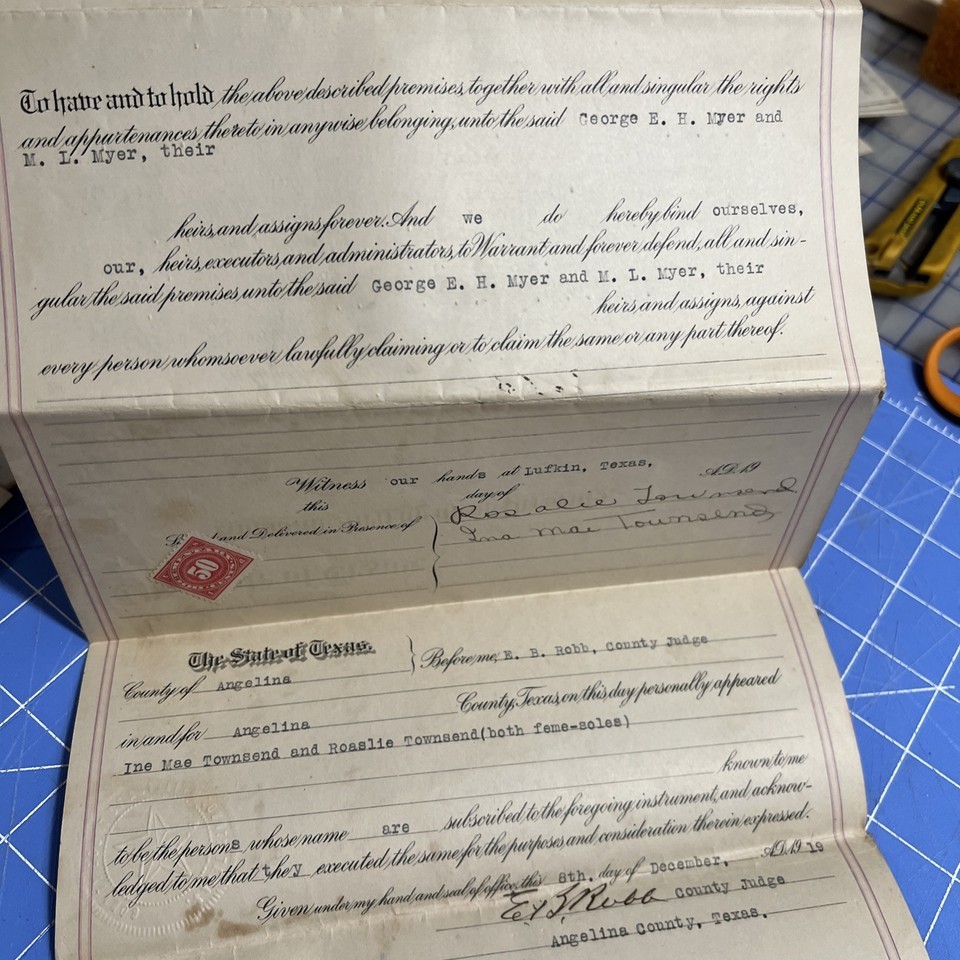 To have and to hold the above described premises, together with all and singular the rights
and appurtenances thereto in anywise belonging, unto the said George E. H. Myer and
M. L. Myer, their
heirs, and assigns, forever. And we do hereby bind ourselves,
our, heirs, executors, and administrators, to Warrant and forever defend, all and sin-
gular the said premises, unto the said George E. H. Myer and M. L. Myer, their
heirs and assigns, against
every person whomsoever lawfully claiming or to claim the same or any part thereof.
Witness our hands at Lufkin, Texas,
this day of A.D. 19
and Delivered in Presence of
Rosalie Townsend
Ina Mae Townsend
50
The State of Texas.
County of Angelina
Before me, E. B. Robb, County Judge
in and for Angelina County, Texas, on this day personally appeared
Ine Mae Townsend and Roaslie Townsend(both feme-soles)
known to me
to be the persons whose name are subscribed to the foregoing instrument, and acknow-
ledged to me that they executed the same for the purposes and consideration therein expressed.
Given under my hand and seal of office, this 8th. day of December, A.D. 19 19
E B Robb County Judge
Angelina County, Texas.